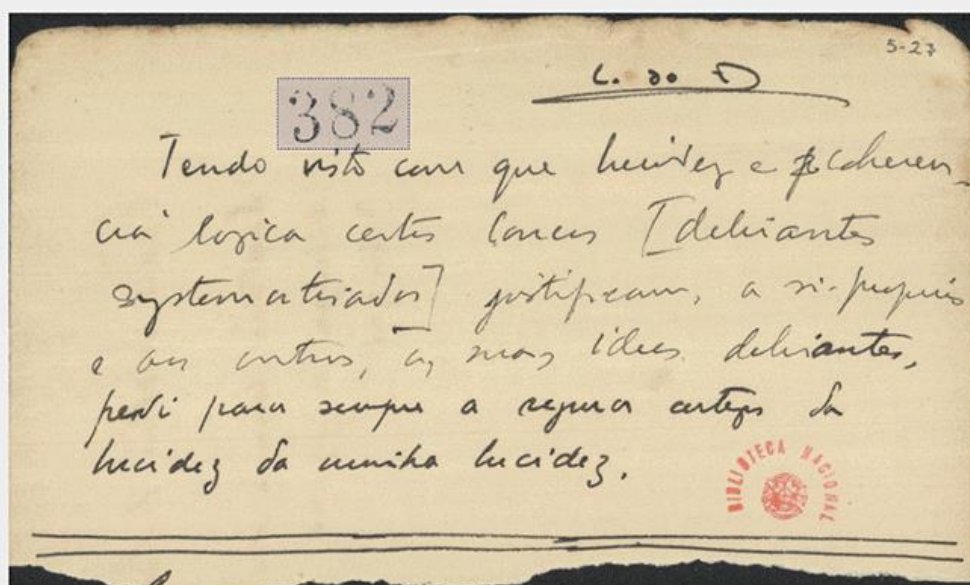 5-27
L. do D
382
Tendo visto com que lucidez e coheren-
cia logica certos loucos [delirantes
systematisados] justificam, a si-proprios
e aos outros, as suas idéas delirantes,
perdi para sempre a segura certeza da
lucidez da minha lucidez.
BIBLIOTECA NACIONAL